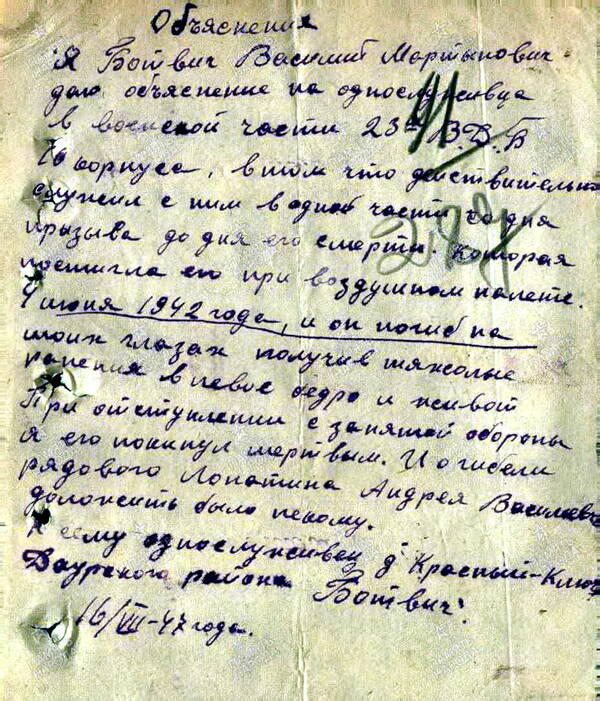 Объяснения
Я Ботвич Василий Мартынович
даю объяснение на однослуживца
в воинской части 23й В.Д.Б
10 корпуса, в том что действительно
служил с ним в одной части со дня
призыва до дня его смерти. Которая
постигла его при воздушном налете.
4 июня 1942 года, и он погиб на
моих глазах получив тяжолые
ранения в левое бедро и живот
При отступлении с занятой обороны
я его покинул мертвым. И о гибели
рядового Лопатина Андрея Василиевич
доложить было некому.
К сему однослуживец д Красный-Ключ
Даурского района Ботвич.
16/VII-47 года.